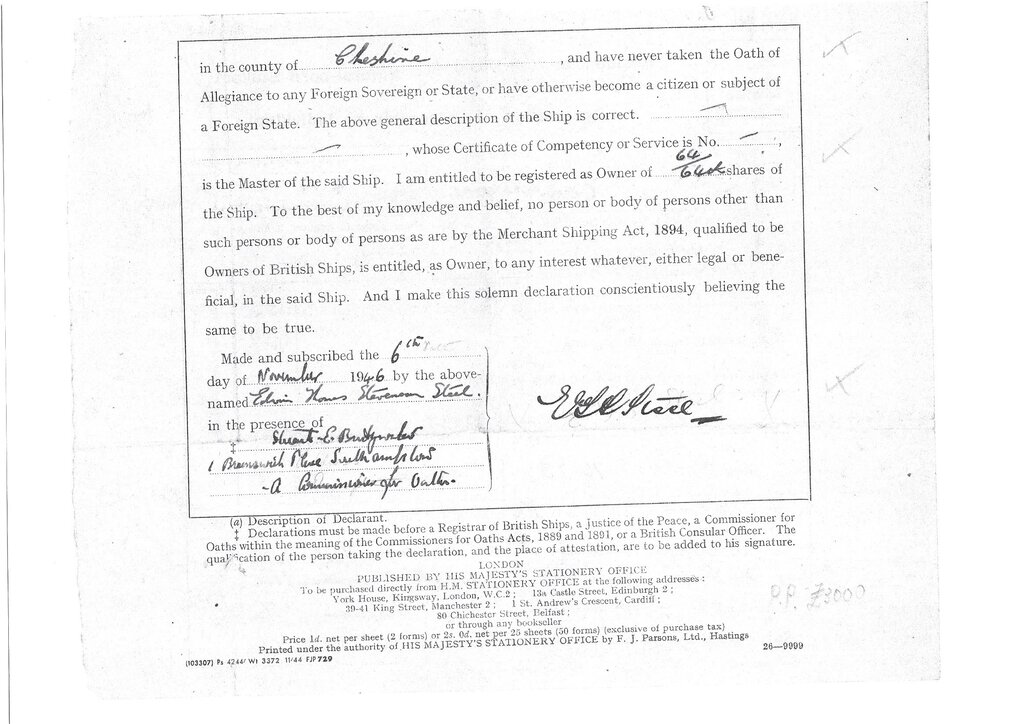 in the county of Cheshire, and have never taken the Oath of
Allegiance to any Foreign Sovereign or State, or have otherwise become a citizen or subject of
a Foreign State. The above general description of the Ship is correct.
, whose Certificate of Competency or Service is No. ,
is the Master of the said Ship. I am entitled to be registered as Owner of 64/64th shares of
the Ship. To the best of my knowledge and belief, no person or body of persons other than
such persons or body of persons as are by the Merchant Shipping Act, 1894, qualified to be
Owners of British Ships, is entitled, as Owner, to any interest whatever, either legal or bene-
ficial, in the said Ship. And I make this solemn declaration conscientiously believing the
same to be true.
Made and subscribed the 6th
day of November 1946 by the above-
named Edwin Stevenson Steel.
in the presence of
‡ Stuart E. Bridgwater
1 Brunswick Place Southampton
- A Commissioner for Oaths.
Steel
(a) Description of Declarant.
‡ Declarations must be made before a Registrar of British Ships, a Justice of the Peace, a Commissioner for
Oaths within the meaning of the Commissioners for Oaths Acts, 1889 and 1891, or a British Consular Officer. The
qualification of the person taking the declaration, and the place of attestation, are to be added to his signature.
LONDON
PUBLISHED BY HIS MAJESTY'S STATIONERY OFFICE
To be purchased directly from H.M. STATIONERY OFFICE at the following addresses:
York House, Kingsway, London, W.C.2; 13a Castle Street, Edinburgh 2;
39-41 King Street, Manchester 2; 1 St. Andrew's Crescent, Cardiff;
80 Chichester Street, Belfast;
or through any bookseller
Price 1d. net per sheet (2 forms) or 2s. 0d. net per 25 sheets (50 forms) (exclusive of purchase tax)
Printed under the authority of HIS MAJESTY'S STATIONERY OFFICE by F. J. Parsons, Ltd., Hastings
P.P. £3000
26—9999
(103307) Ps 4244/ Wt 3372 11/44 FJP 729